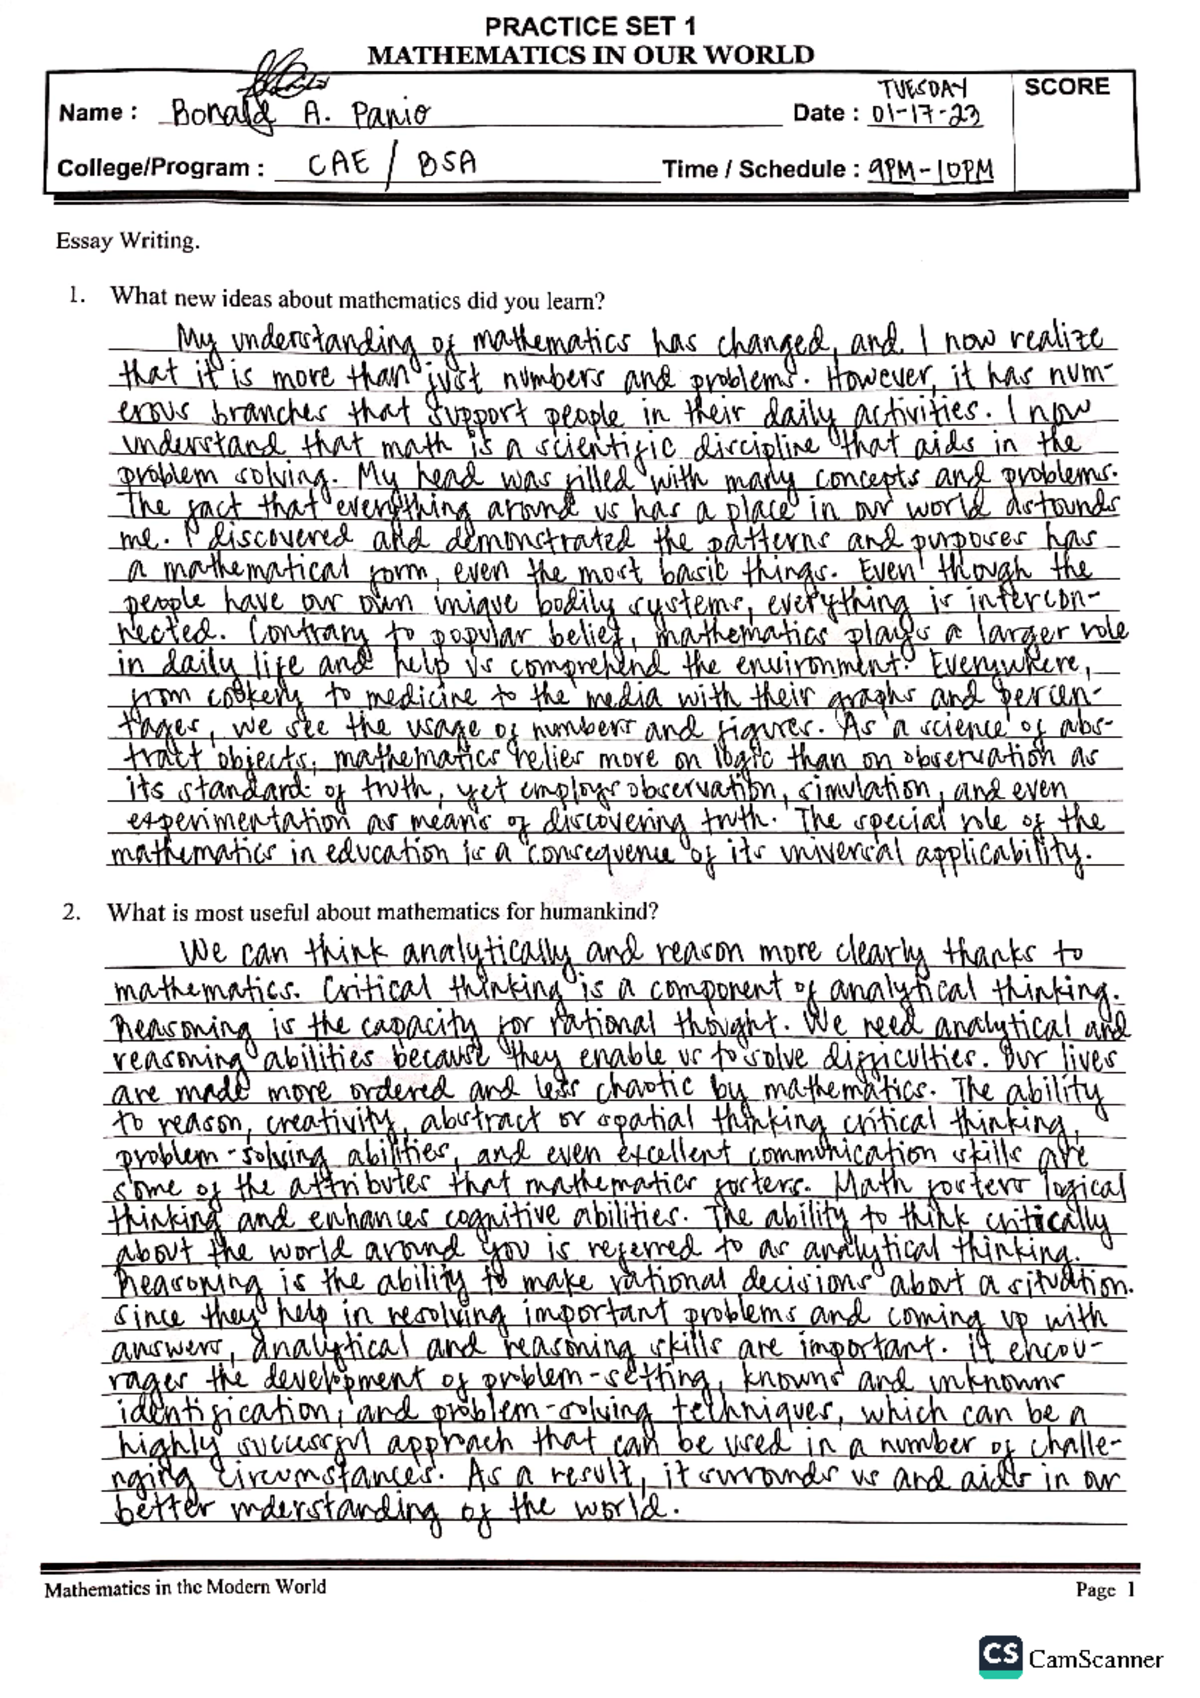 PRACTICE SET 1
MATHEMATICS IN OUR WORLD
Name : Bonald A. Panio
TUESDAY
Date : 01-17-23
SCORE
College/Program : CAE / BSA
Time / Schedule : 9PM-10PM
Essay Writing.
1. What new ideas about mathematics did you learn?
My understanding of mathematics has changed, and I now realize
that it is more than just numbers and problems. However, it has num-
erous branches that support people in their daily activities. I now
understand that math is a scientific discipline that aids in the
problem solving. My head was filled with many concepts and problems.
The fact that everything around us has a place in our world astounds
me. I discovered and demonstrated the patterns and purposes has
a mathematical form, even the most basic things. Even though the
people have our own inique bodily systems, everything is intercon-
nected. Contrary to popular belief, mathematics plays a larger role
in daily life and help us comprehend the environment. Everywhere,
from cookery to medicine to the media with their graphs and percen-
tages, we see the usage of numbers and figures. As a science of abs-
tract objects, mathematics relies more on logic than on observation as
its standard of truth, yet employs observation, simulation, and even
experimentation as means of discovering truth. The special role of the
mathematics in education is a consequence of its universal applicability.
2. What is most useful about mathematics for humankind?
We can think analytically and reason more clearly thanks to
mathematics. Critical thinking is a component of analytical thinking.
Reasoning is the capacity for rational thought. We need analytical and
reasoning abilities because they enable us to solve difficulties. Our lives
are made more ordered and less chaotic by mathematics. The ability
to reason, creativity, abstract or spatial thinking critical thinking,
problem-solving abilities, and even excellent communication skills are
some of the attributes that mathematics fosters. Math fosters logical
thinking and enhances cognitive abilities. The ability to think critically
about the world around you is referred to as analytical thinking.
Reasoning is the ability to make rational decisions about a situation.
Since they help in resolving important problems and coming up with
answers, analytical and reasoning skills are important. It encou-
rages the development of problem-setting, knowns and unknowns
identification, and problem-solving techniques, which can be a
highly successful approach that can be used in a number of challe-
nging circumstances. As a result, it surrounds us and aids in our
better understanding of the world.
Mathematics in the Modern World
Page 1
CS CamScanner